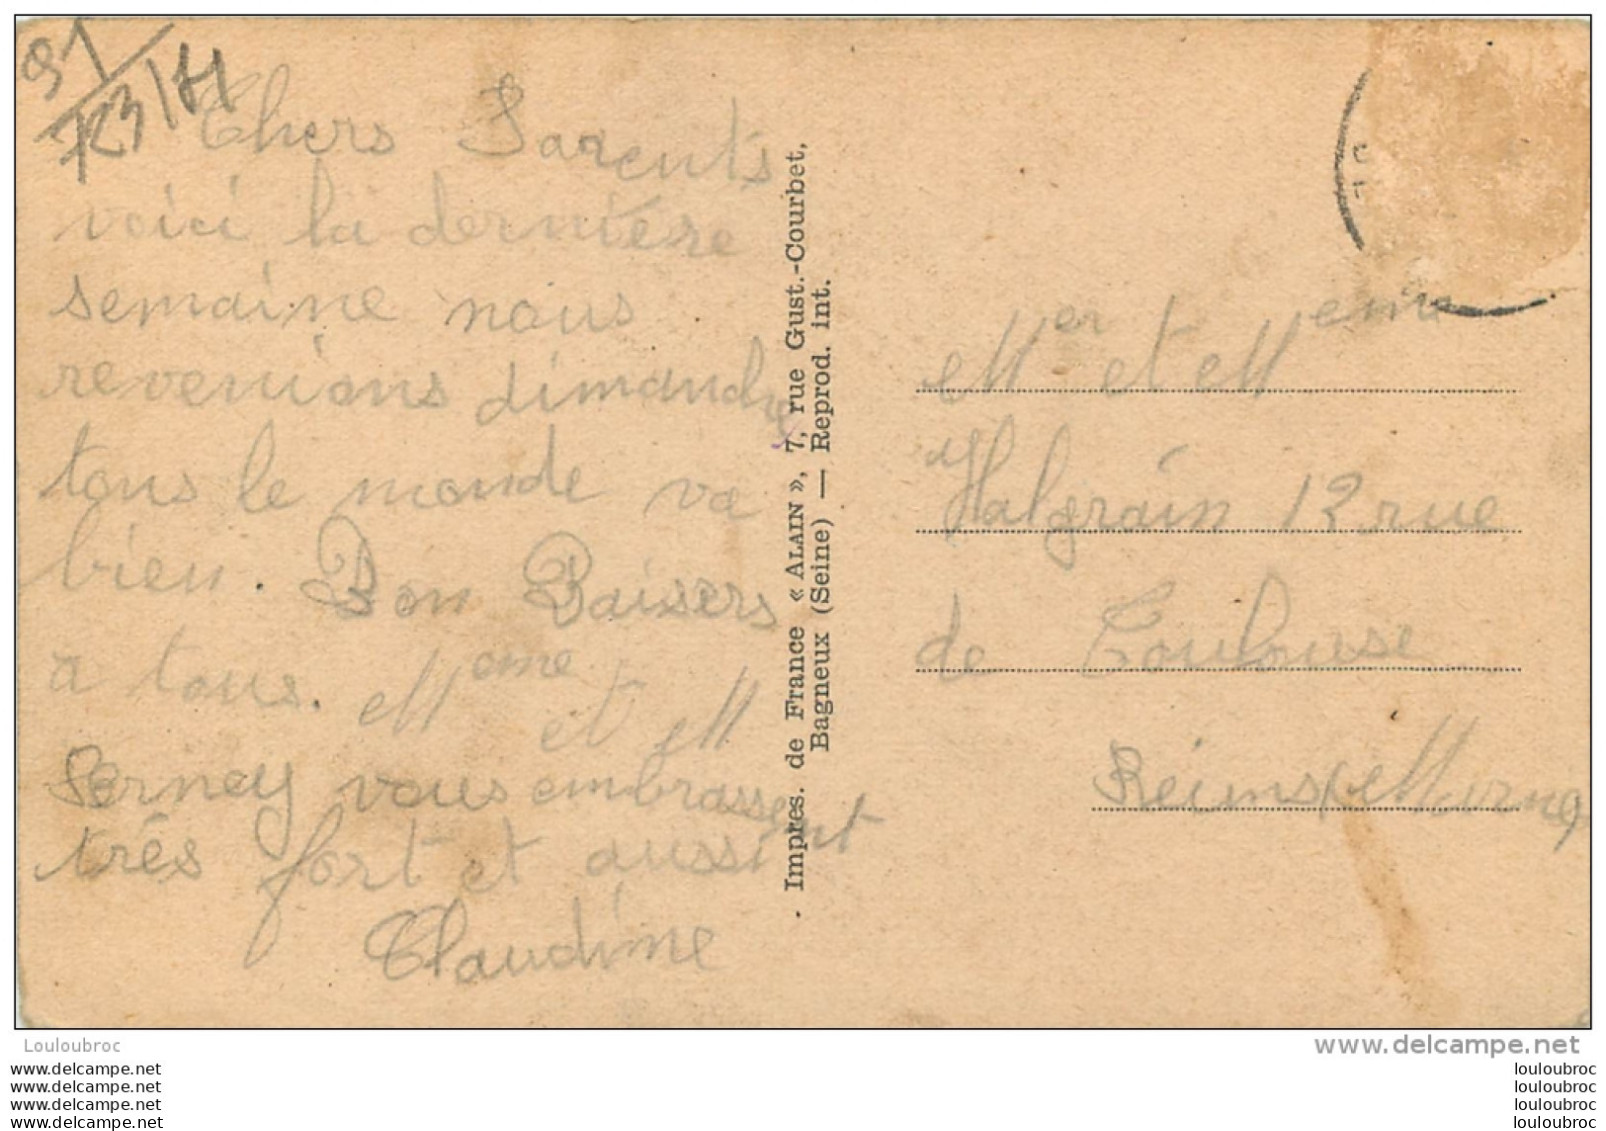 91
723/H
Chers Parents
voici la dernière
semaine nous
revenions dimanche
tous le monde va
bien. Bon Baisers
a tous. Meme et M
Perney vous embrassent
três fort et aussi
Claudine
Impres. de France « ALAIN », 7, rue Gust.-Courbet,
Bagneux (Seine) — Reprod. int.
Mer et Meme
Halgrain 12 rue
de Toulouse
Reims Marne
Louloubroc
www.delcampe.net
www.delcampe.net
www.delcampe.net
www.delcampe.net
www.delcampe.net
louloubroc
louloubroc
louloubroc
louloubroc